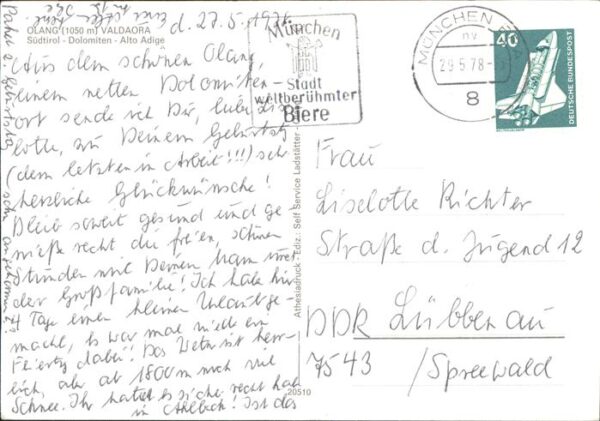 OLANG (1050 m) VALDAORA
Südtirol - Dolomiten - Alto Adige
d. 27.5.1978
Aus dem schönen Olang,
einem netten Dolomiten-
ort sende ich Dir, liebe Lis-
lotte, zu Deinem Geburtstg
(dem letzten in Arbeit!!!) sehr
herzliche Glückwünsche!
Bleib soweit gesund und ge-
nieße recht die freien, schönen
Stunden mit Deinem Mann und
der Großfamilie! Ich habe hier
14 Tage einen kleinen Urlaub ge-
macht, es war mal wieder ein
Feiertg dabei! Das Wetter ist herr-
lich, aber ab 1800 m noch viel
Schnee. Ihr hattet es sicher recht
in Ahlbeck! Ist das
München
Stadt
weltberühmter
Biere
MÜNCHEN
nv
29.5.78
8
40
DEUTSCHE BUNDESPOST
Athesiadruck - Ediz.: Self Service Ladstätter
20510
Frau
Liselotte Richter
Straße d. Jugend 12
DDR Lübbenau
7543 /Spreewald